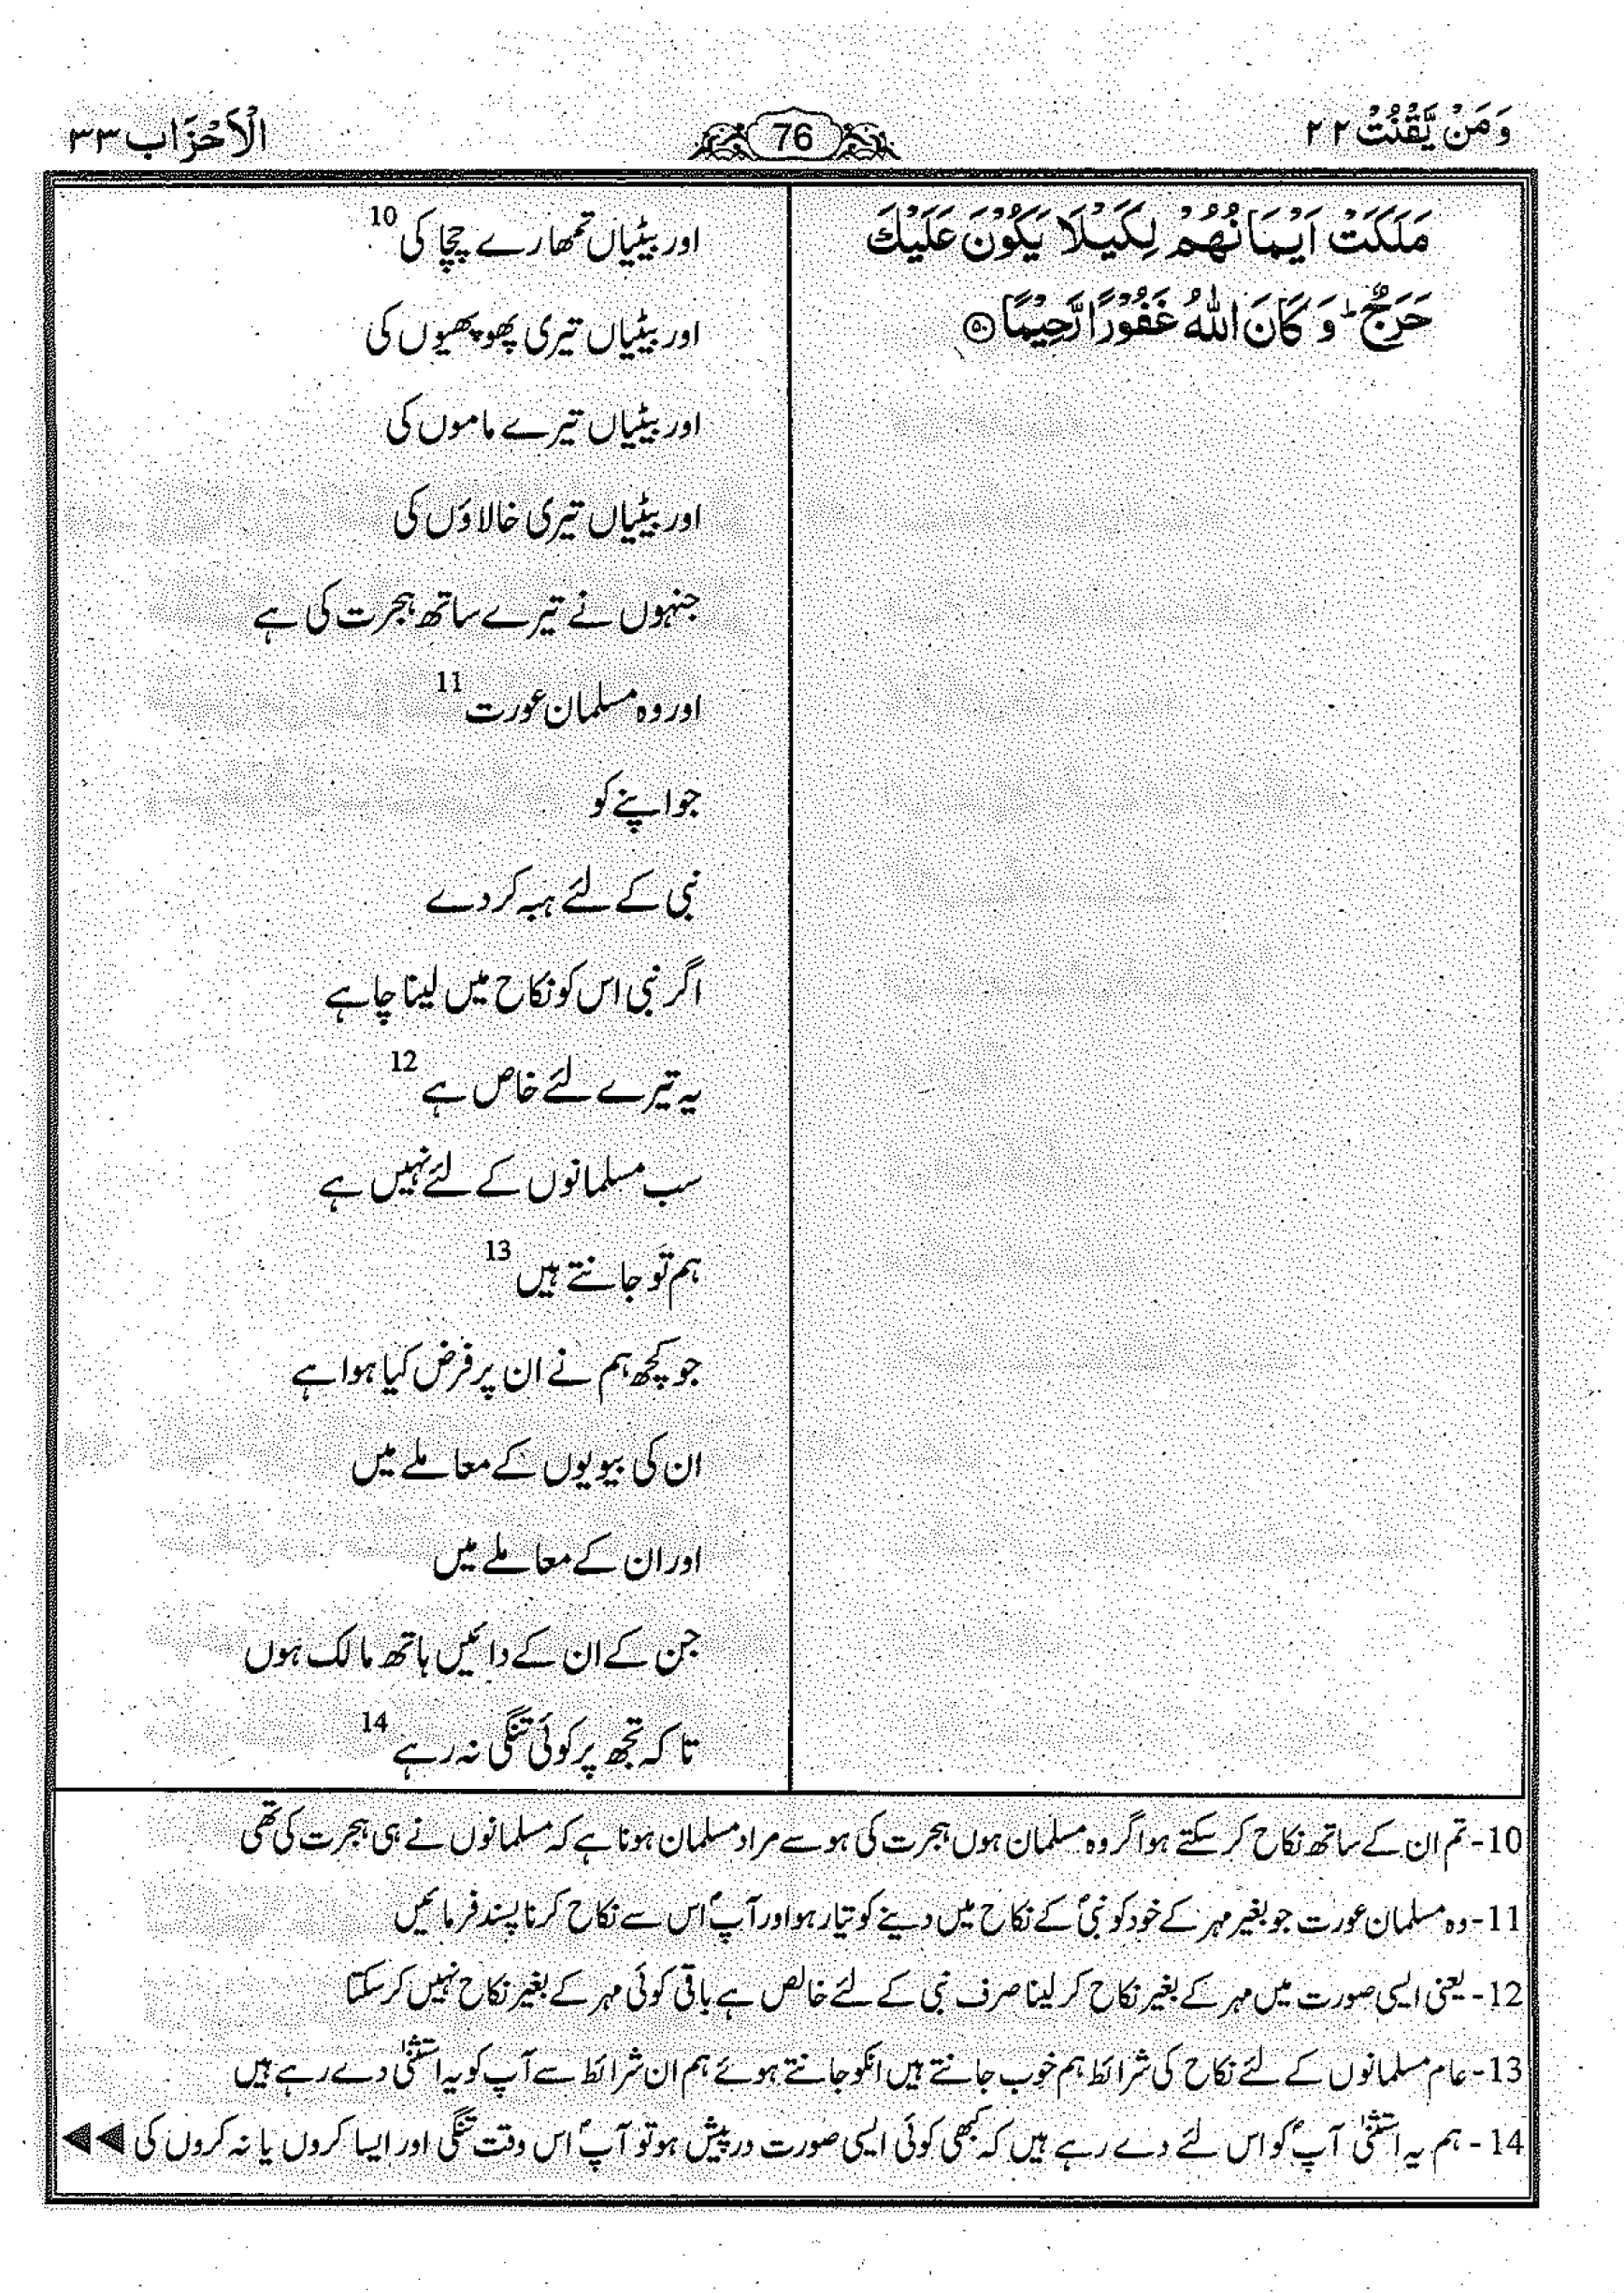 وَمَنْ يَّقْنُتْ ۲۲
76
الْاَحْزَاب ۳۳
مَلَكَتْ اَيْمَانُهُمْ لِكَيْلَا يَكُوْنَ عَلَيْكَ
حَرَجٌ ؕ وَ كَانَ اللّٰهُ غَفُوْرًا رَّحِيْمًا ﴿۵۰﴾
اور بیٹیاں تمھارے چچا کی 10
اور بیٹیاں تیری پھوپھیوں کی
اور بیٹیاں تیرے ماموں کی
اور بیٹیاں تیری خالاؤں کی
جنہوں نے تیرے ساتھ ہجرت کی ہے
اور وہ مسلمان عورت 11
جو اپنے کو
نبی کے لئے ہبہ کر دے
اگر نبی اس کو نکاح میں لینا چاہے
یہ تیرے لئے خاص ہے 12
سب مسلمانوں کے لئے نہیں ہے
ہم تو جانتے ہیں 13
جو کچھ ہم نے ان پر فرض کیا ہوا ہے
ان کی بیویوں کے معاملے میں
اور ان کے معاملے میں
جن کے ان کے دائیں ہاتھ مالک ہوں
تا کہ تجھ پر کوئی تنگی نہ رہے 14
10- تم ان کے ساتھ نکاح کر سکتے ہو اگر وہ مسلمان ہوں ہجرت کی ہو سے مراد مسلمان ہونا ہے کہ مسلمانوں نے ہی ہجرت کی تھی
11- وہ مسلمان عورت جو بغیر مہر کے خود کو نبیؐ کے نکاح میں دینے کو تیار ہو اور آپؐ اس سے نکاح کرنا پسند فرمائیں
12- یعنی ایسی صورت میں مہر کے بغیر نکاح کر لینا صرف نبی کے لئے خالص ہے باقی کوئی مہر کے بغیر نکاح نہیں کر سکتا
13- عام مسلمانوں کے لئے نکاح کی شرائط ہم خوب جانتے ہیں انکو جانتے ہوئے ہم ان شرائط سے آپ کو یہ استثنٰی دے رہے ہیں
14- ہم یہ استثنٰی آپؐ کو اس لئے دے رہے ہیں کہ کبھی کوئی ایسی صورت درپیش ہو تو آپؐ اس وقت تنگی اور ایسا کروں یا نہ کروں کی ◀◀